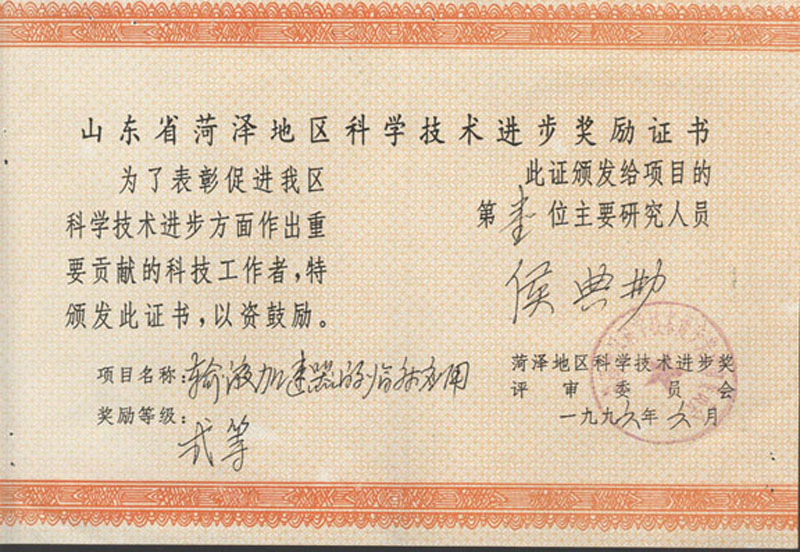 山东省菏泽地区科学技术进步奖励证书
为了表彰促进我区
科学技术进步方面作出重
要贡献的科技工作者，特
颁发此证书，以资鼓励。
项目名称：输液加速器的临床应用
奖励等级：
弍等
此证颁发给项目的
第壹位主要研究人员
侯典勋
菏泽地区科学技术进步奖
评审委员会
一九九六年六月